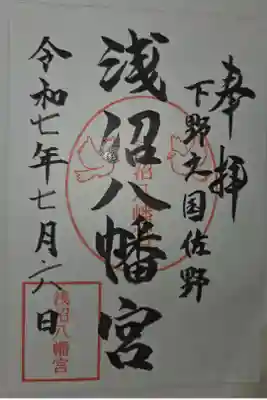 奉拝
下野之国佐野
浅沼八幡宮
沼八幡
令和七年七月六日
浅沼八幡宮